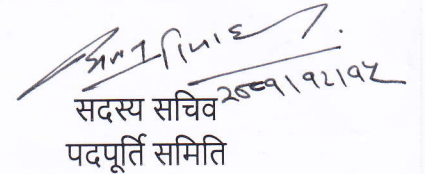 २०८१।१२।१५
सदस्य सचिव
पदपूर्ति समिति